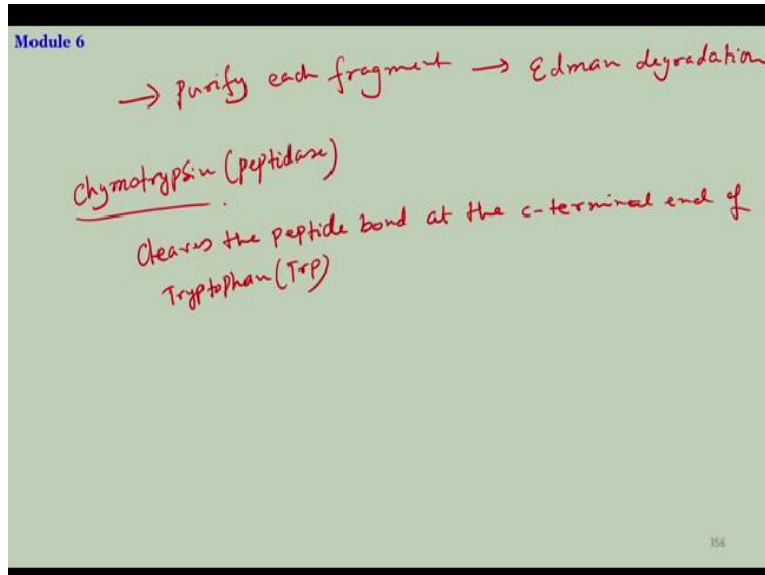 Module 6
→ Purify each fragment → Edman degradation
Chymotrypsin (peptidase)
Cleaves the peptide bond at the c-terminal end of
Tryptophan (Trp)
154